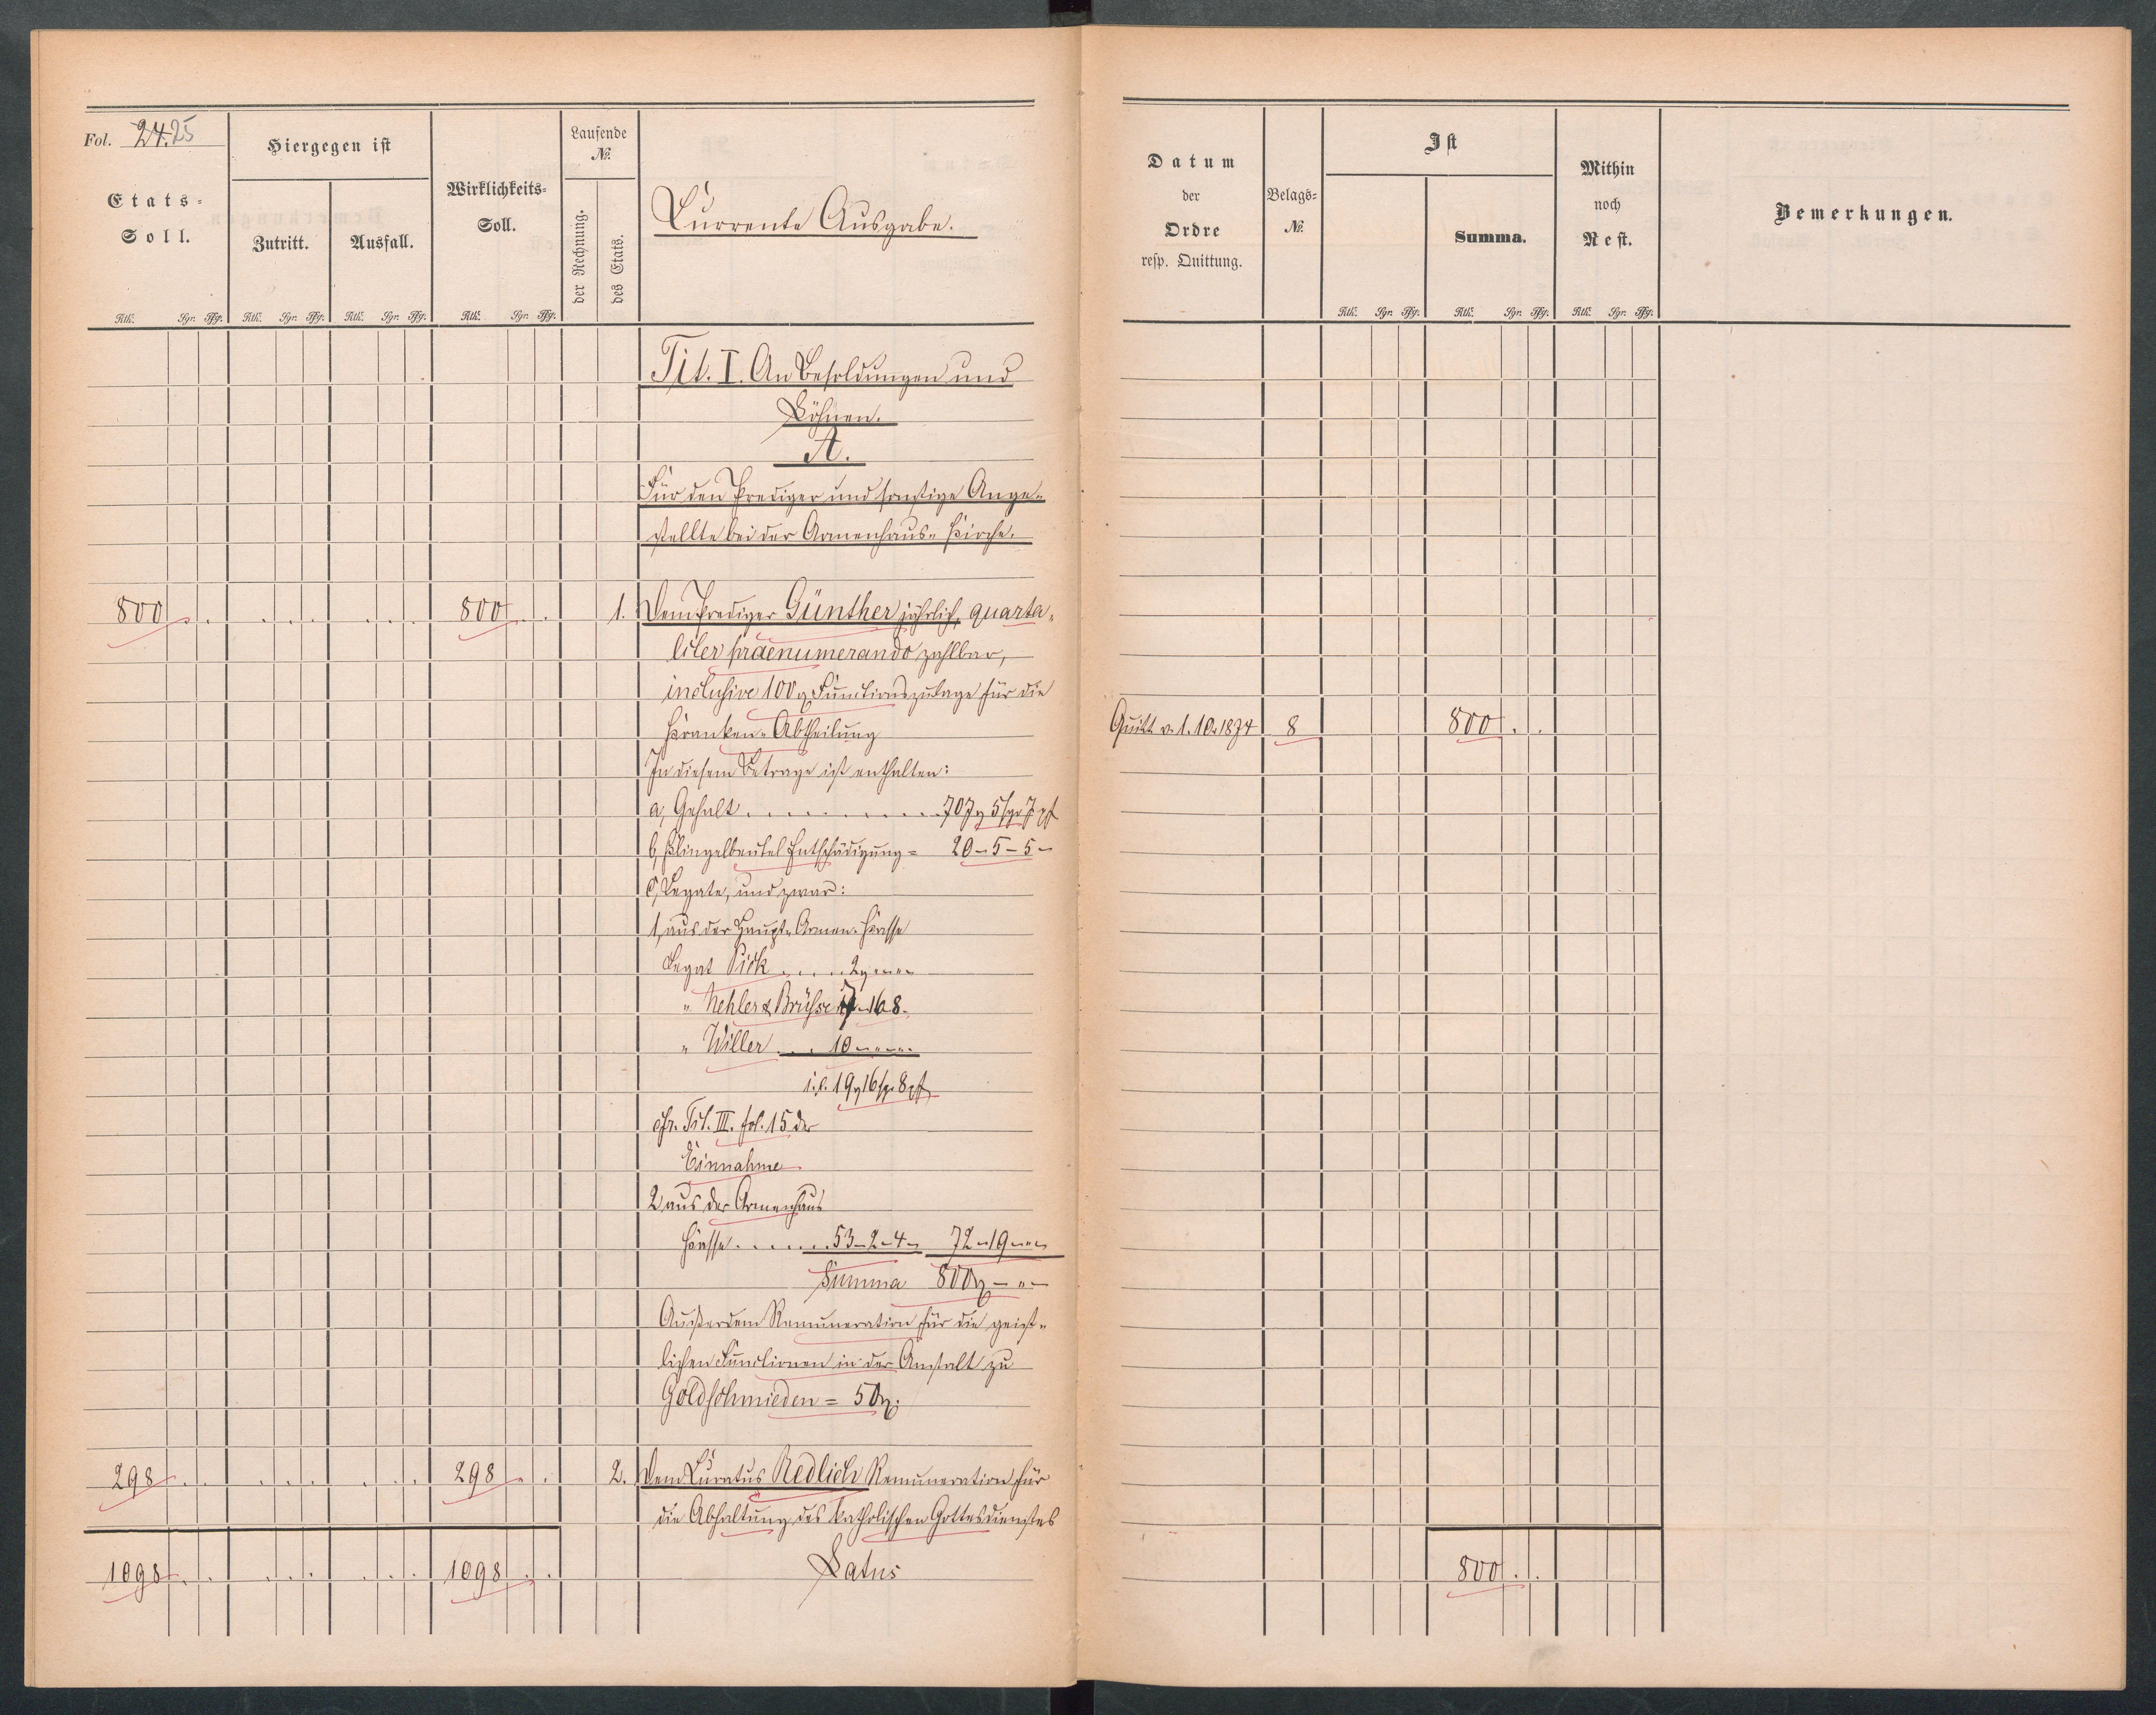 Fol. 24.25
Etats-
Soll.
Hiergegen ist
Zutritt.
Ausfall.
Wirklichkeits-
Soll.
Laufende
No.
der Rechnung.
des Etats.
Currente Ausgabe.
Rtlr. Sgr. Pfg. Rtlr. Sgr. Pfg. Rtlr. Sgr. Pfg. Rtlr. Sgr. Pfg.
Tit. I. An Besoldungen und
Löhnen.
A.
Für den Prediger und sonstige Ange-
stellte bei der Armenhaus-Kirche.
800 . . . . . . . . 800 . . 1. Dem Prediger Günther jährlich, quarta-
liter praenumerando zahlbar,
inclusive 100 rl Functionszulage für die
Kranken-Abtheilung
In diesem Betrage ist enthalten:
a, Gehalt . . . . . . . . . 707 rl 5 sgr 7 pf
b, Klingelbeutel Entschädigung = 20 - 5 - 5 -
c, Legate, und zwar:
1, aus der Haupt-Armen-Kasse
Legat Pick . . . . 2 rl " - "
" Nehler & Brühse 7 - 16 8 -
" Willer . . . 10 - " - "
i. e. 19 rl 16 sgr 8 pf
cfr. Tit. III. fol. 15 der
Einnahme
2, aus der Armenhaus
Kasse . . . . . 53 - 2 - 4 - 72 - 19 - " -
Summa 800 rl - " -
Außerdem Remuneration für die geist-
lichen Functionen in der Anstalt zu
Goldschmieden = 50 rl.
298 . . . . . . . . 298 . . 2. Dem Curatus Redlich Remuneration für
die Abhaltung des katholischen Gottesdienstes
1098 . . . . . . . . 1098 . . Latus
Datum
der
Ordre
resp. Quittung.
Belags-
No.
Ist
Summa.
Mithin
noch
Rest.
Bemerkungen.
Rtlr. Sgr. Pfg. Rtlr. Sgr. Pfg. Rtlr. Sgr. Pfg.
Quitt. v. 1. 10. 1874 8 800 . .
800 . .